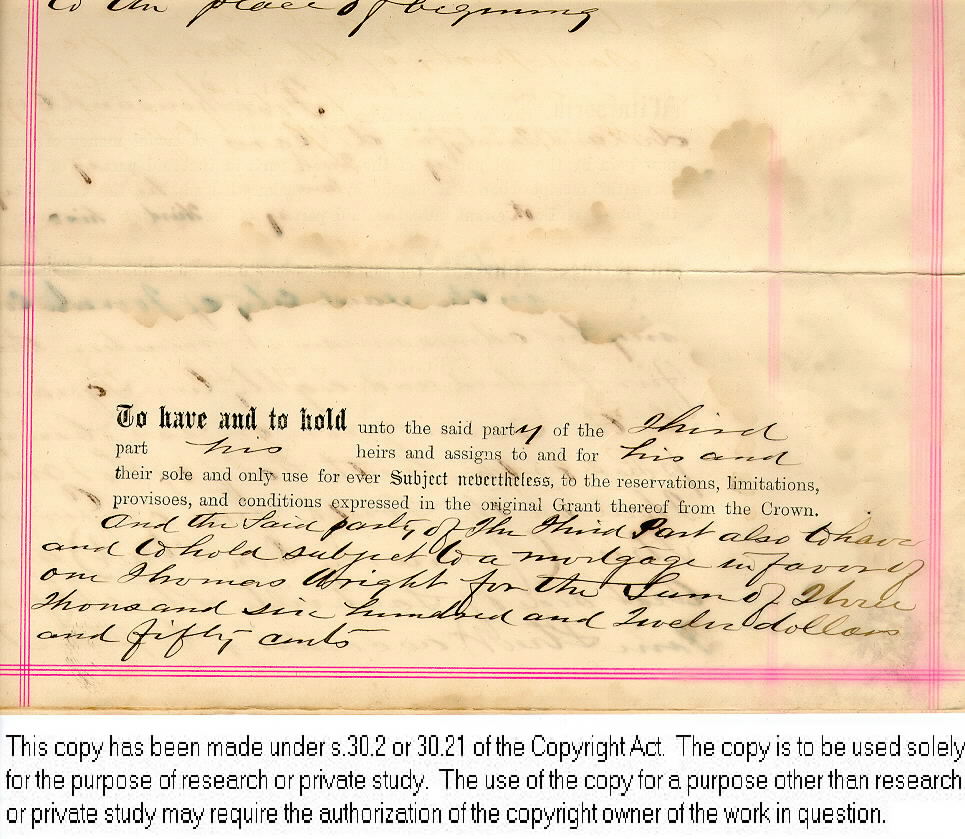 to the place of beginning
To have and to hold unto the said party of the Third
part his heirs and assigns to and for his and
their sole and only use for ever Subject nevertheless, to the reservations, limitations,
provisoes, and conditions expressed in the original Grant thereof from the Crown.
And the Said party of The Third Part also to have
and to hold subject to a mortgage in favor of
one Thomas Wright for the Sum of Three
Thousand six hundred and Twelve dollars
and fifty cents
This copy has been made under s.30.2 or 30.21 of the Copyright Act. The copy is to be used solely
for the purpose of research or private study. The use of the copy for a purpose other than research
or private study may require the authorization of the copyright owner of the work in question.